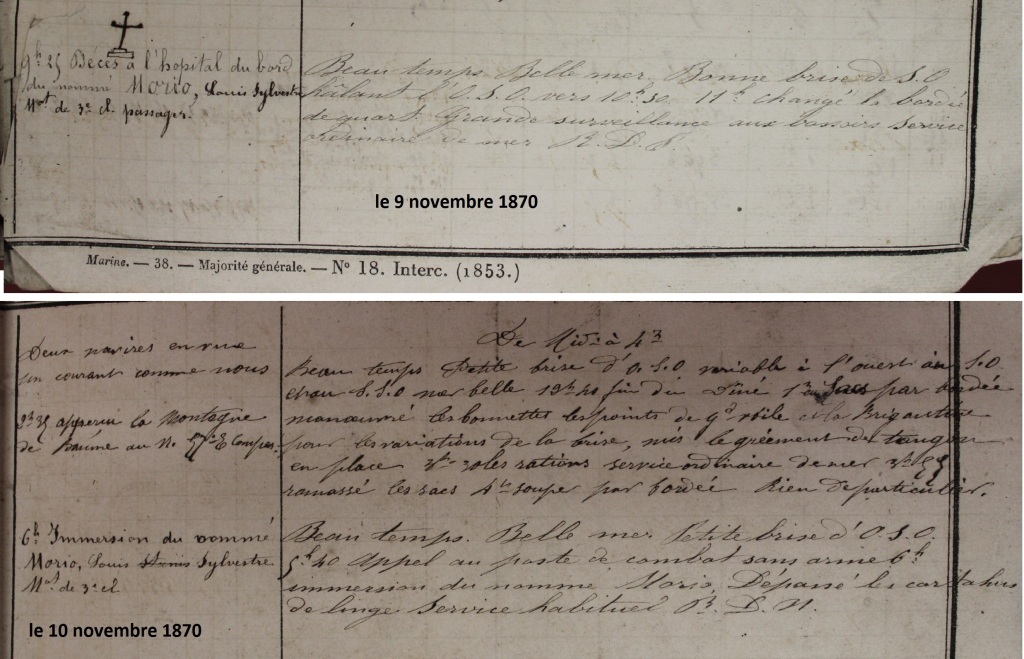 9h 25 Décès à l'hopital du bord
du nommé Morio, Louis Sylvestre
Mot de 3e cl. passager.
Beau temps. Belle mer. Bonne brise de S.O
hâlant l'O.S.O. vers 10h 30. 11h changé la bordée
de quart. Grande surveillance aux bossoirs Service
ordinaire de mer R.D.P.
le 9 novembre 1870
Marine. — 38. — Majorité générale. — No 18. Interc. (1853.)
De Midi à 4h
Deux navires en vue
courant comme nous
2h 35 aperçu la Montagne
de au N. E Compas.
Beau temps Petite brise d'O.S.O variable à l'ouest au S.O
et au S.S.O mer belle 12h 40 fin du Diné 1h Sacs par bordée
manœuvré les bonnettes les points de Gd voile et la Brigantine
pour les variations de la brise, mis le gréement de tangon
en place 3h 30 les rations service ordinaire de mer 3h 55
ramassé les sacs 4h souper par bordée Rien de particulier.
6h Immersion du nommé
Morio, Louis Sylvestre
Mot de 3e cl
Beau temps. Belle mer Petite brise d'O.S.O.
5h 40 Appel au poste de combat sans arme 6h
immersion du nommé Morio, Dépassé les cartahus
de linge Service habituel R.D.N.
le 10 novembre 1870